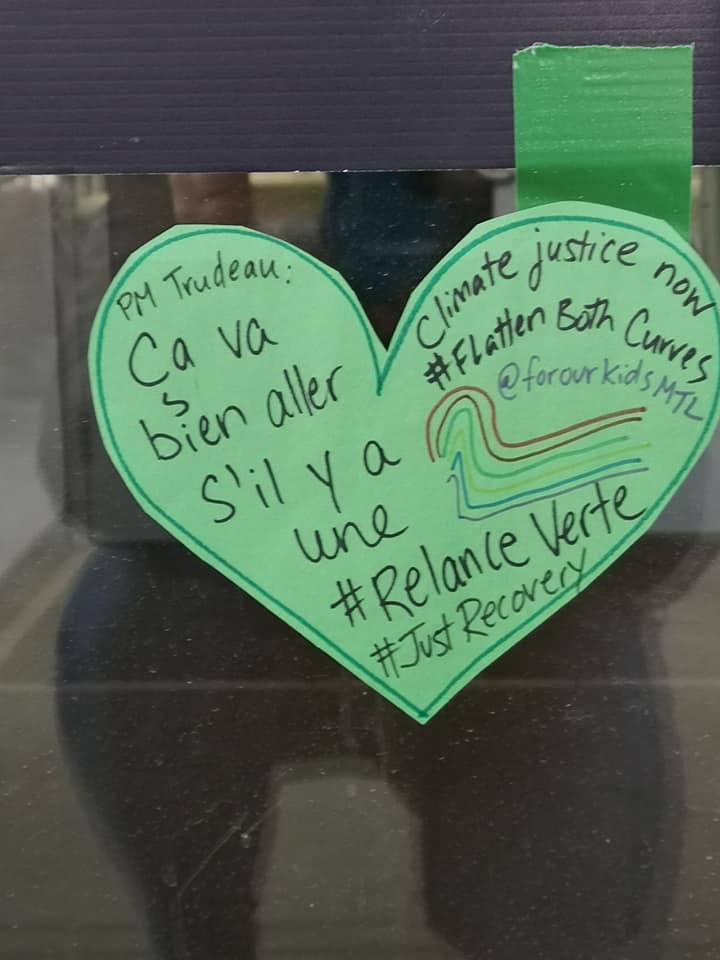 PM Trudeau:
Ça va
bien aller
s'il y a
une
#Relance Verte
#JustRecovery
Climate justice now
#Flatten Both Curves
@forourkidsMTL